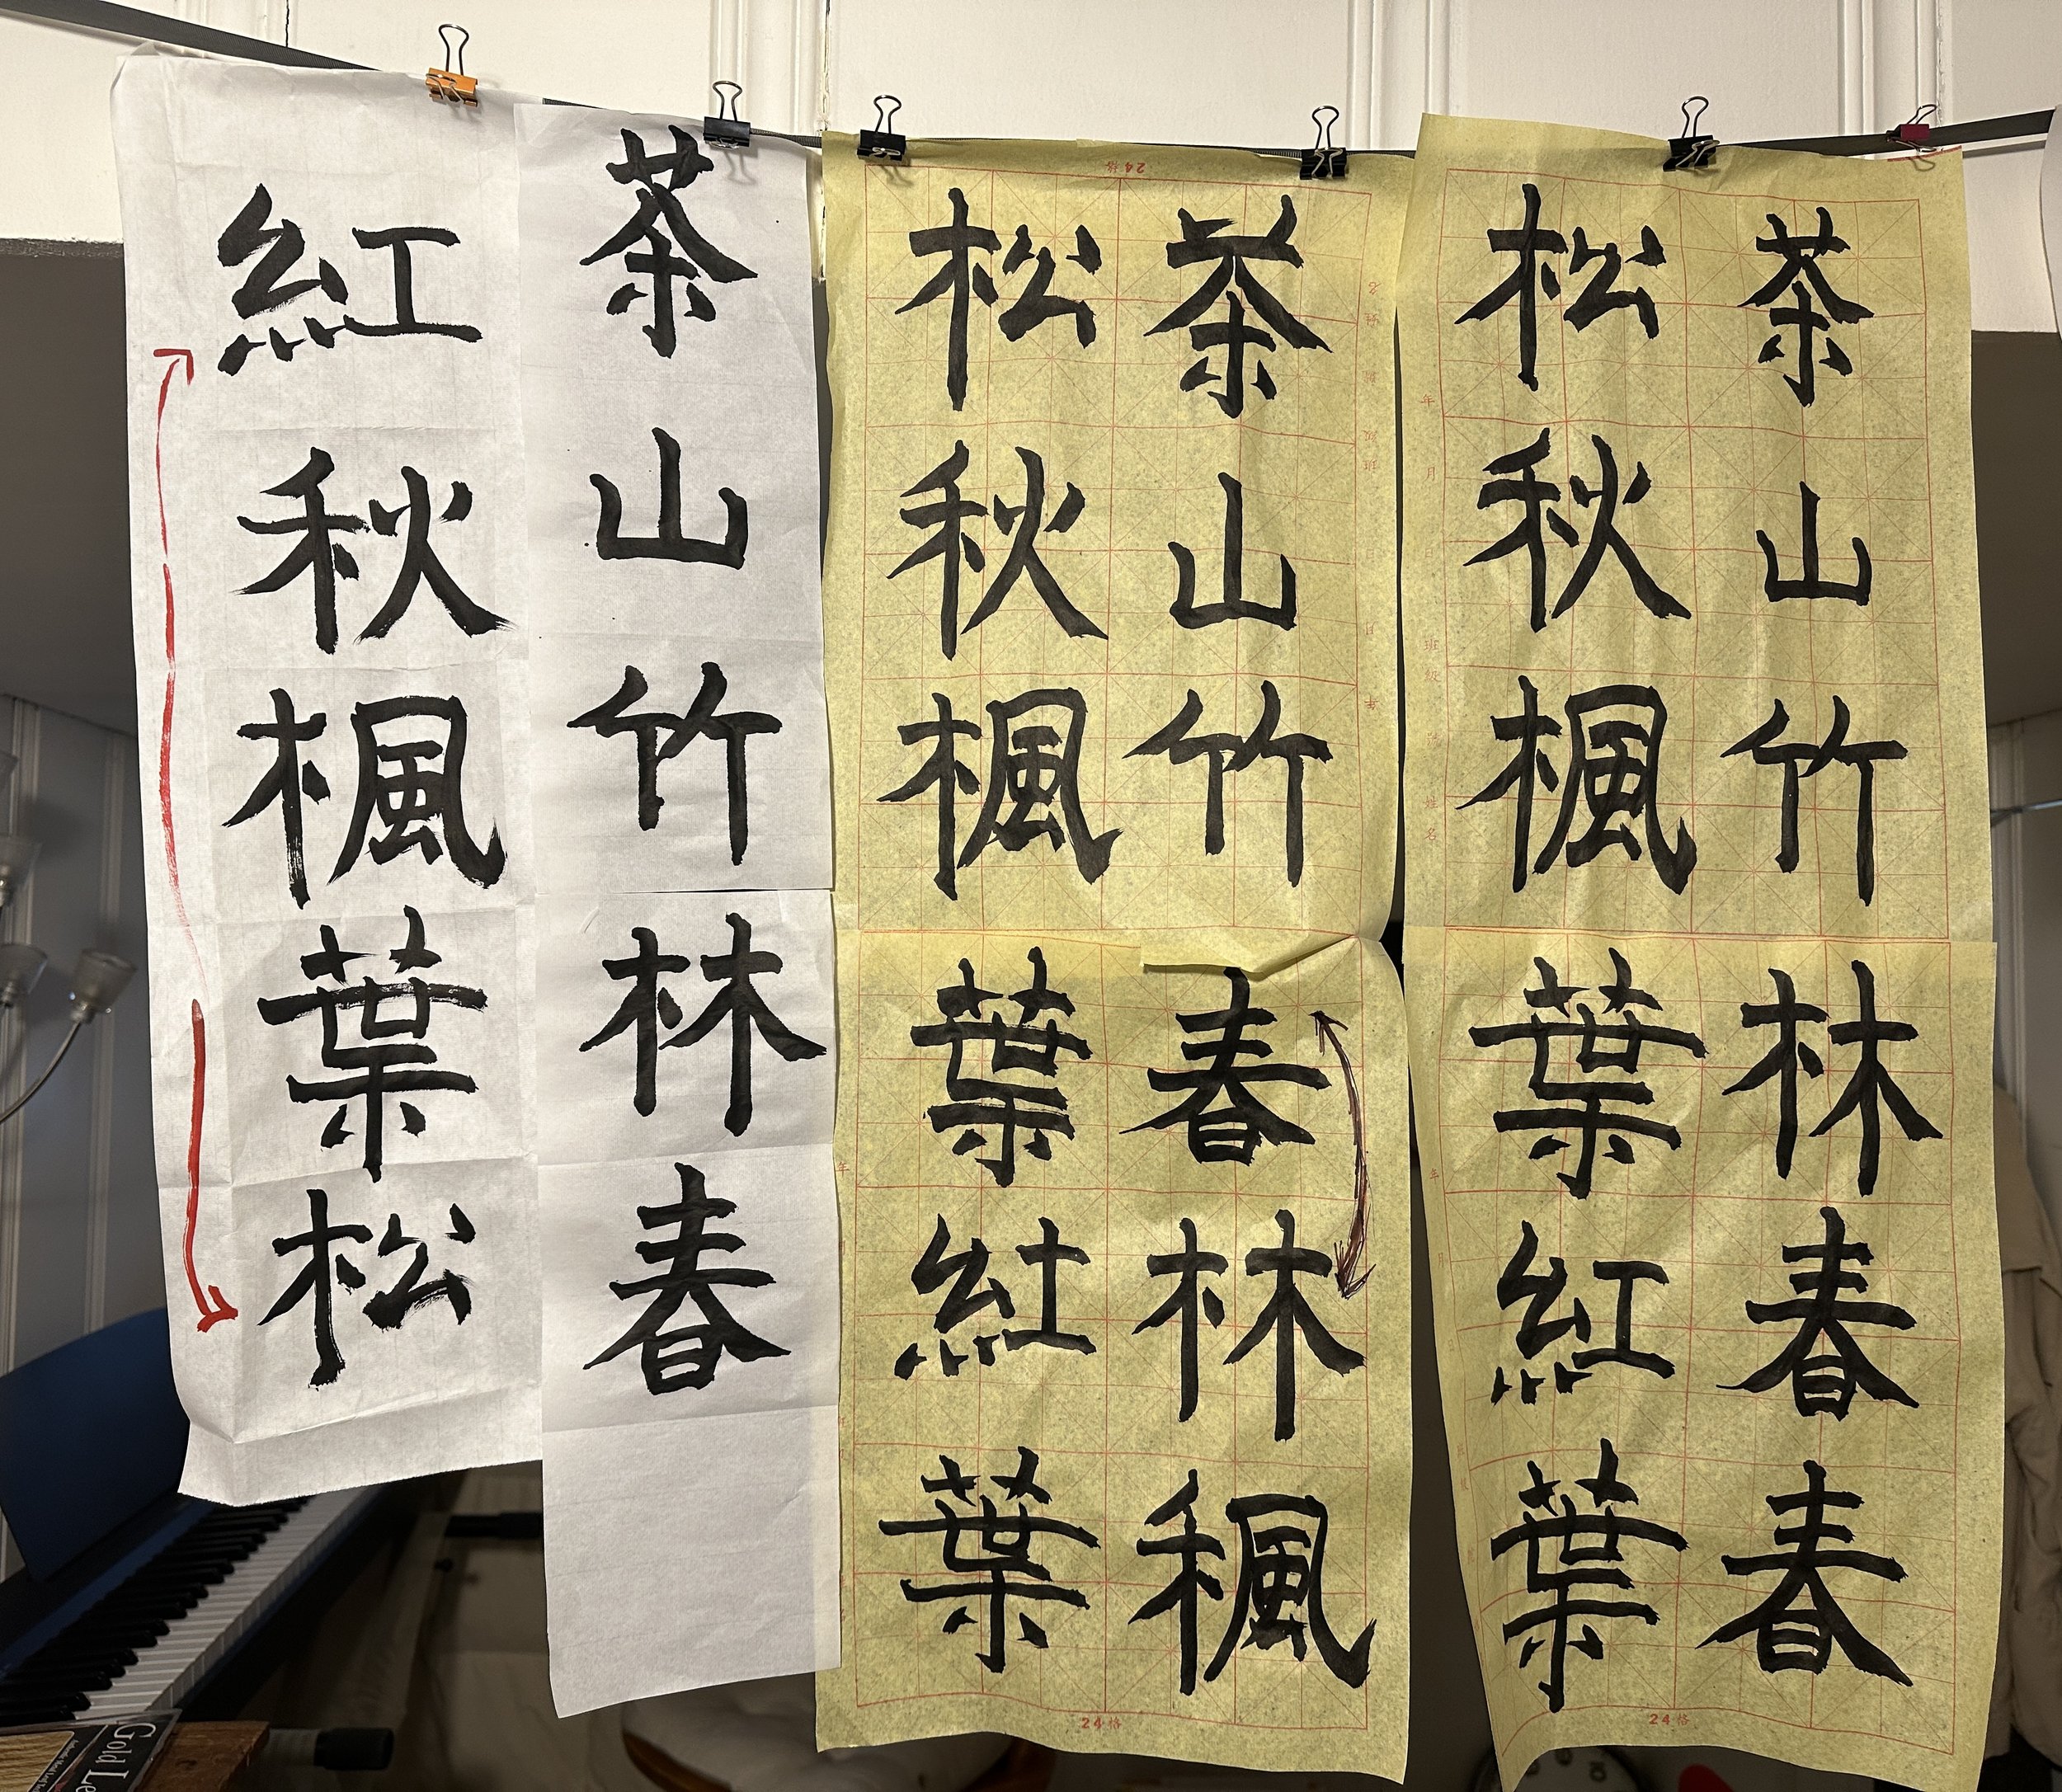 茶山竹林春春
松秋楓葉紅葉
年 月 日 班級 姓名
24格
茶山竹春林
松秋楓葉紅葉
24格
24格
茶山竹林春
紅秋楓葉松
Gold